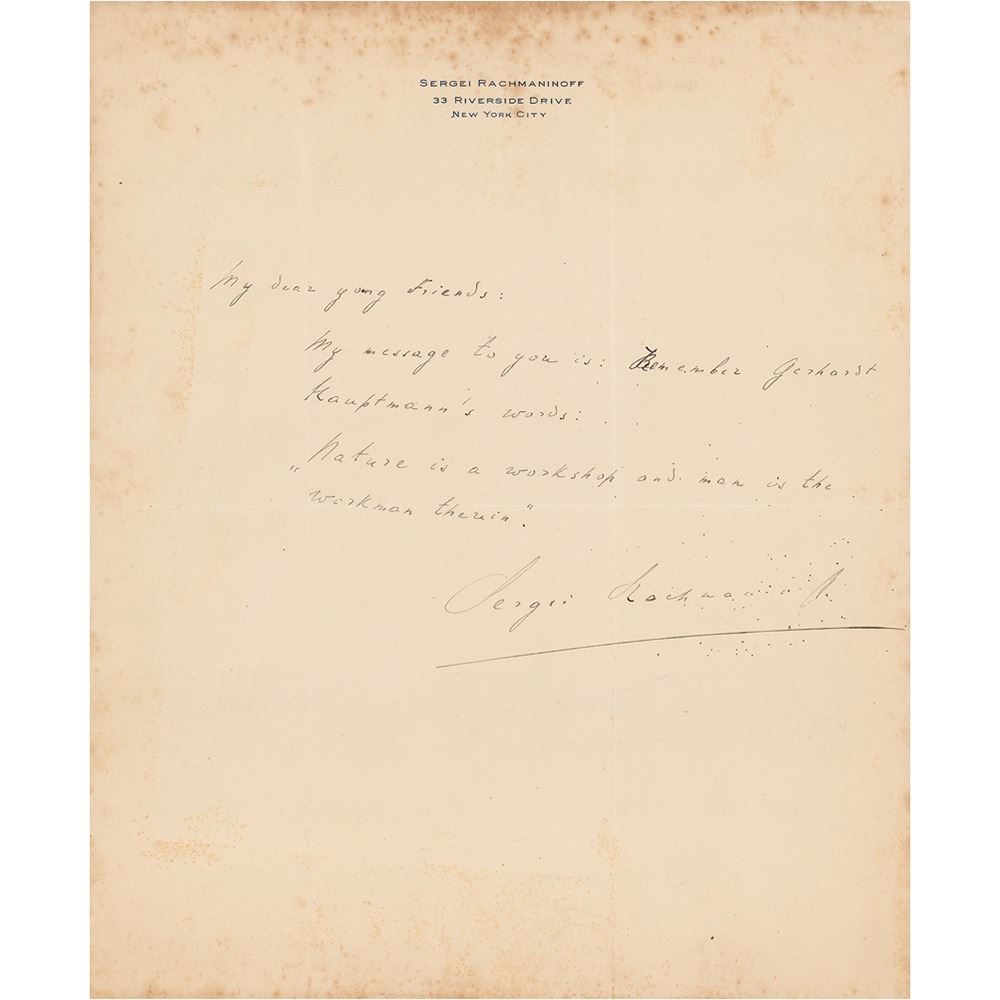 SERGEI RACHMANINOFF
33 RIVERSIDE DRIVE
NEW YORK CITY
My dear yong Friends:
My message to you is: Remember Gerhardt
Hauptmann's words:
„Nature is a workshop and man is the
workman therein".
Sergei Rachmaninoff